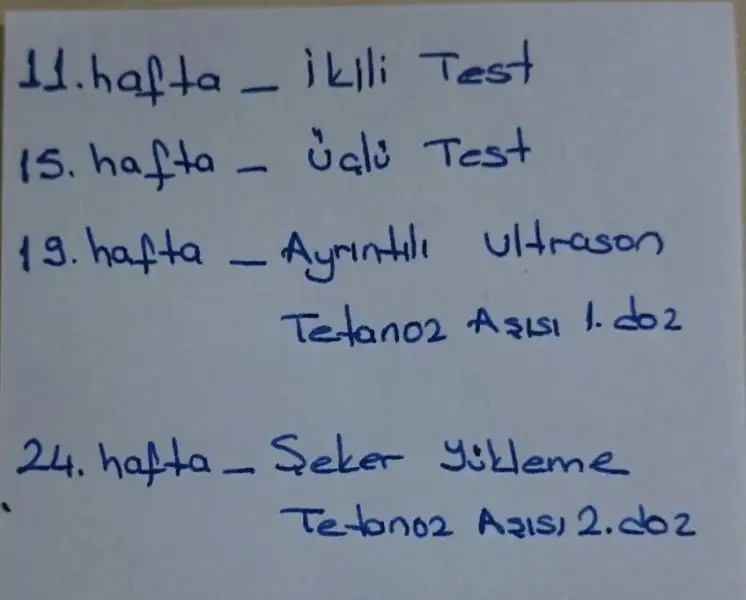 11. hafta - ikili Test
15. hafta - üçlü Test
19. hafta - Ayrıntılı Ultrason
Tetanoz Aşısı 1. doz
24. hafta - Şeker Yükleme
Tetanoz Aşısı 2. doz